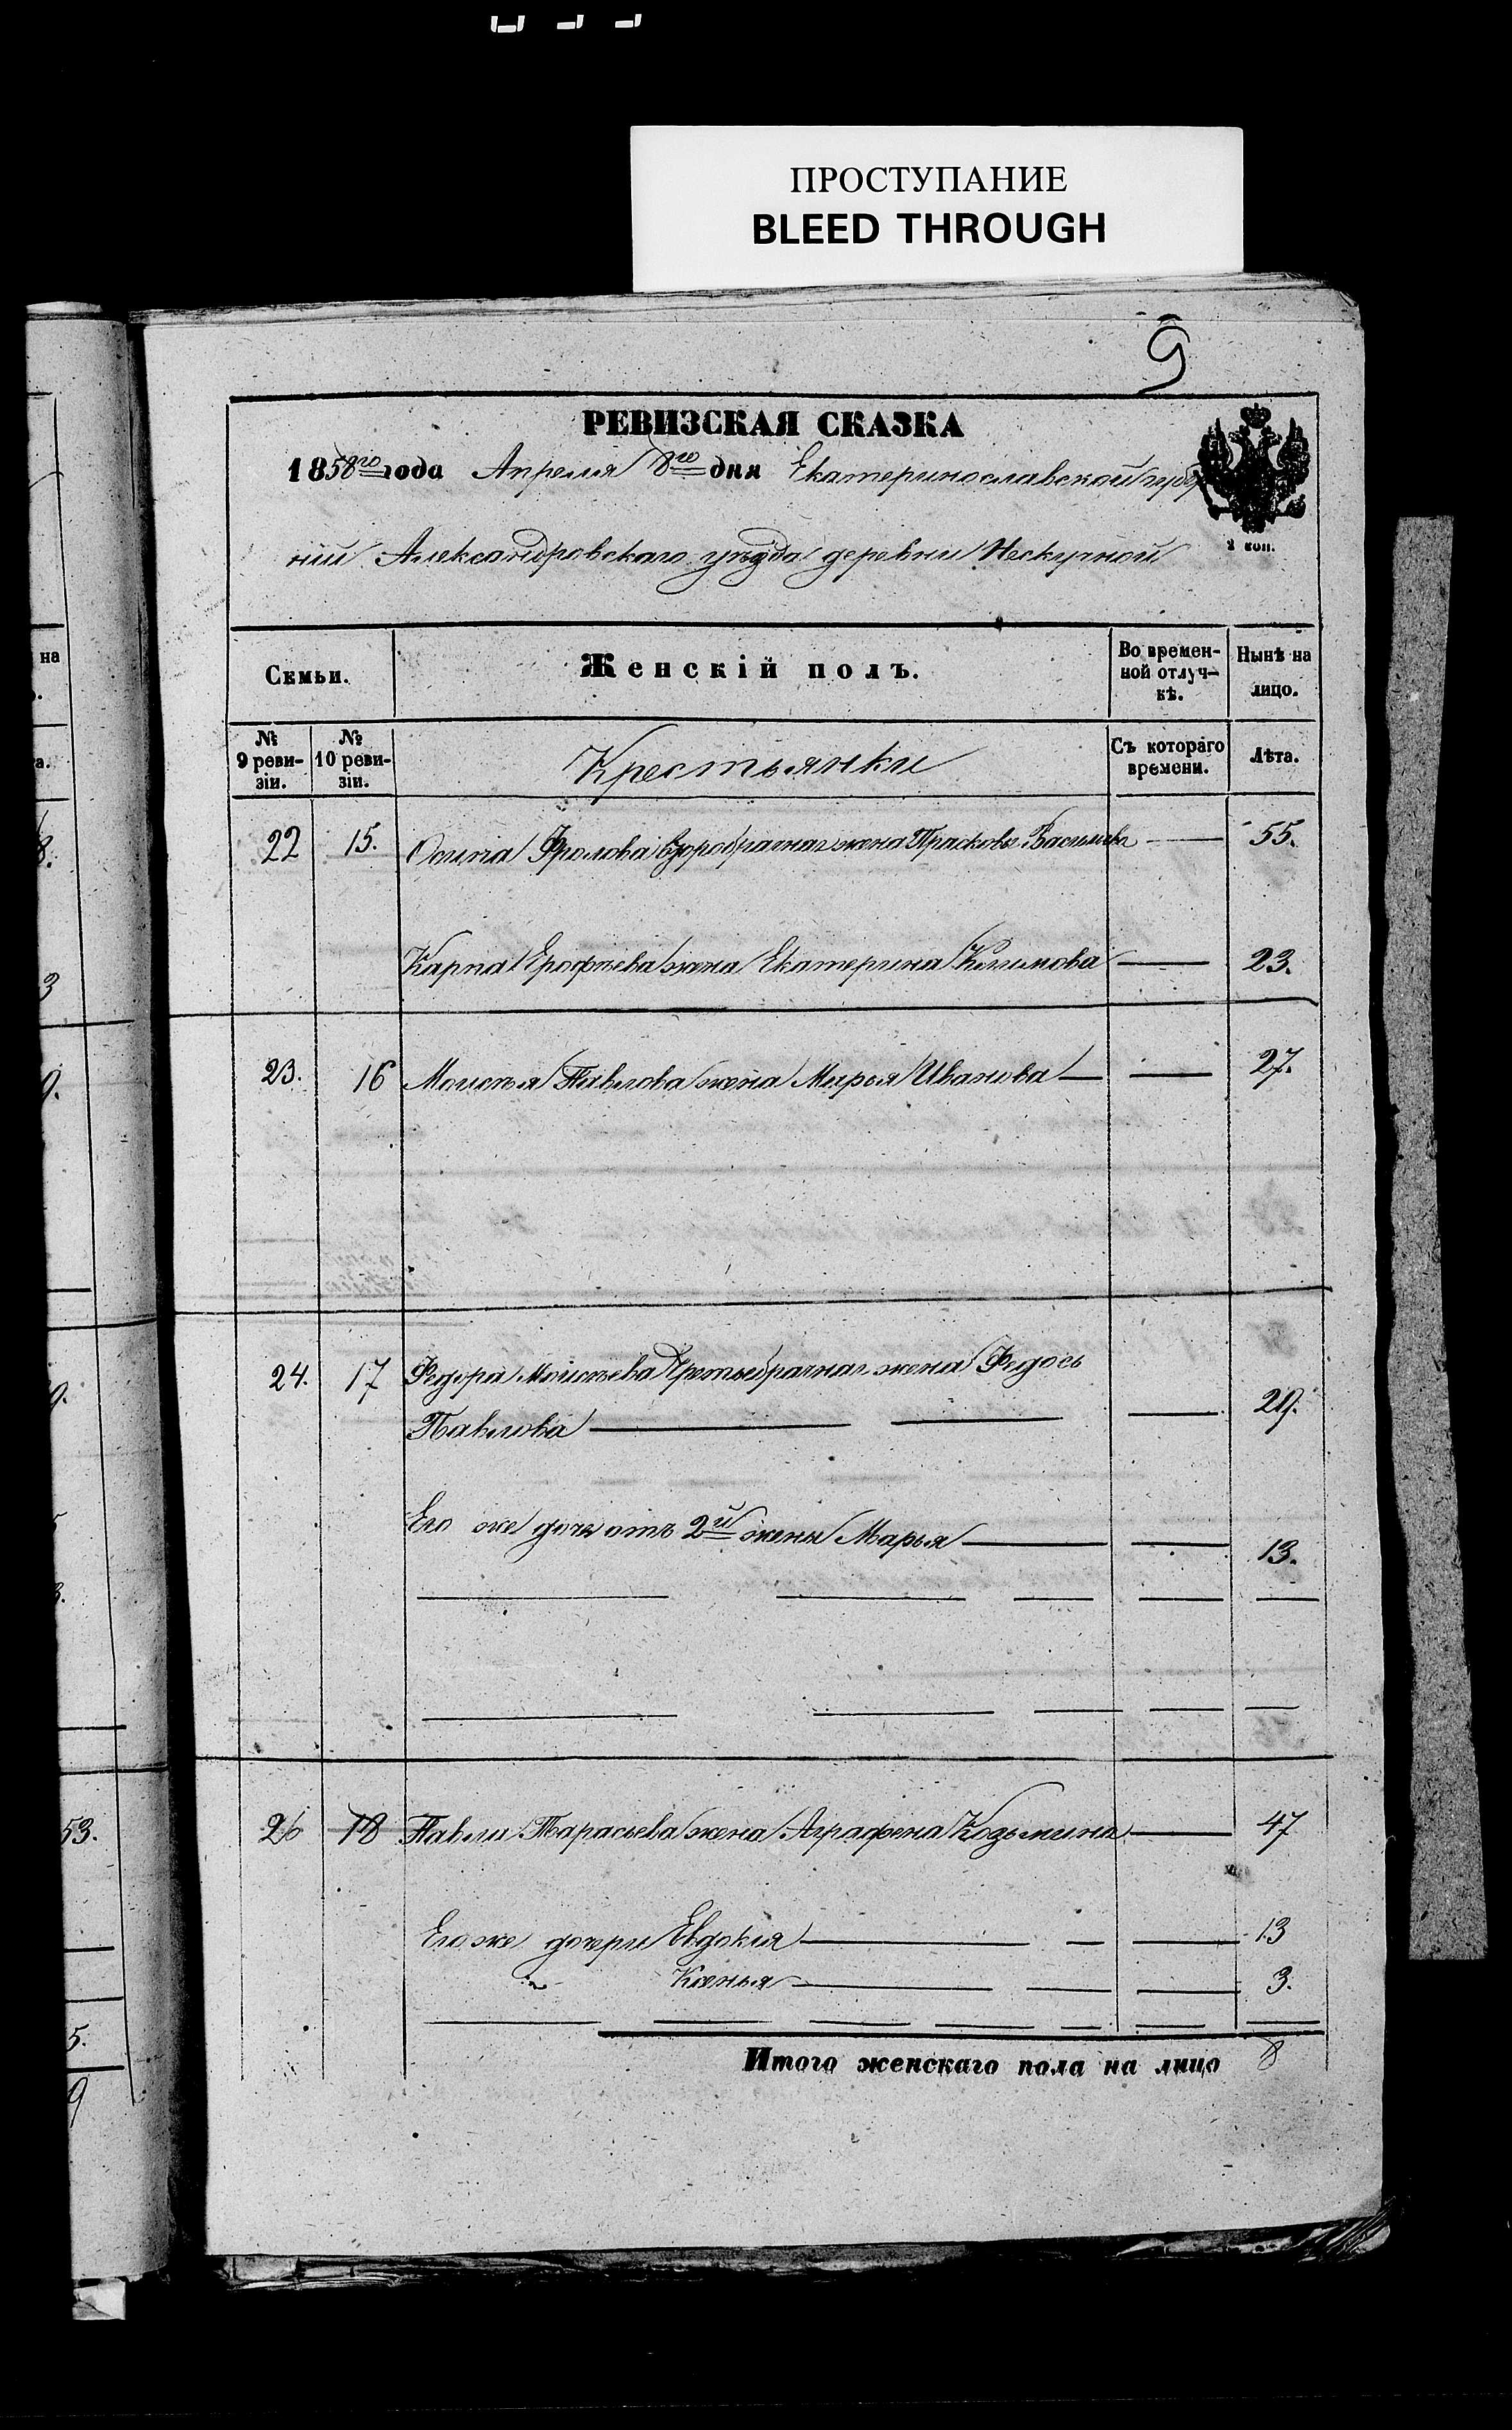 ПРОСТУПАНИЕ
BLEED THROUGH
9
РЕВИЗСКАЯ СКАЗКА
1858го года Апреля 8го дня Екатеринославской губер
нии Александровскаго уѣзда деревни Нескучной
2 коп.
Семьи. Женскій полъ. Во временной отлучкѣ. Нынѣ на лицо.
№ 9 ревизіи. № 10 ревизіи. Крестьянки Съ котораго времени. Лѣта.
22 15. Осипа Фролова второбрачная жена Прасковья Васильева 55.
Карпа Ерофѣева жена Екатерина Климова 23.
23. 16 Моисѣя Павлова жена Марья Иванова 27.
24. 17 Федора Моисѣева третьебрачная жена Федось
Павлова 29.
Его же дочь отъ 2й жены Марья 13.
26 18 Павла Тарасьева жена Аграфена Козьмина 47
Его же дочери Евдокія 13
" Ксенья 3.
Итого женскаго пола на лицо 8
на
а.
8.
3
9.
9.
53.
5.
9